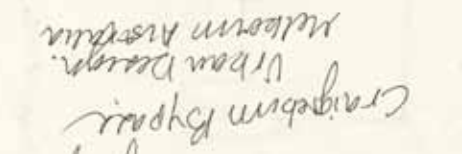 Craigieburn Bypass
Urban Design.
Melbourn Australia